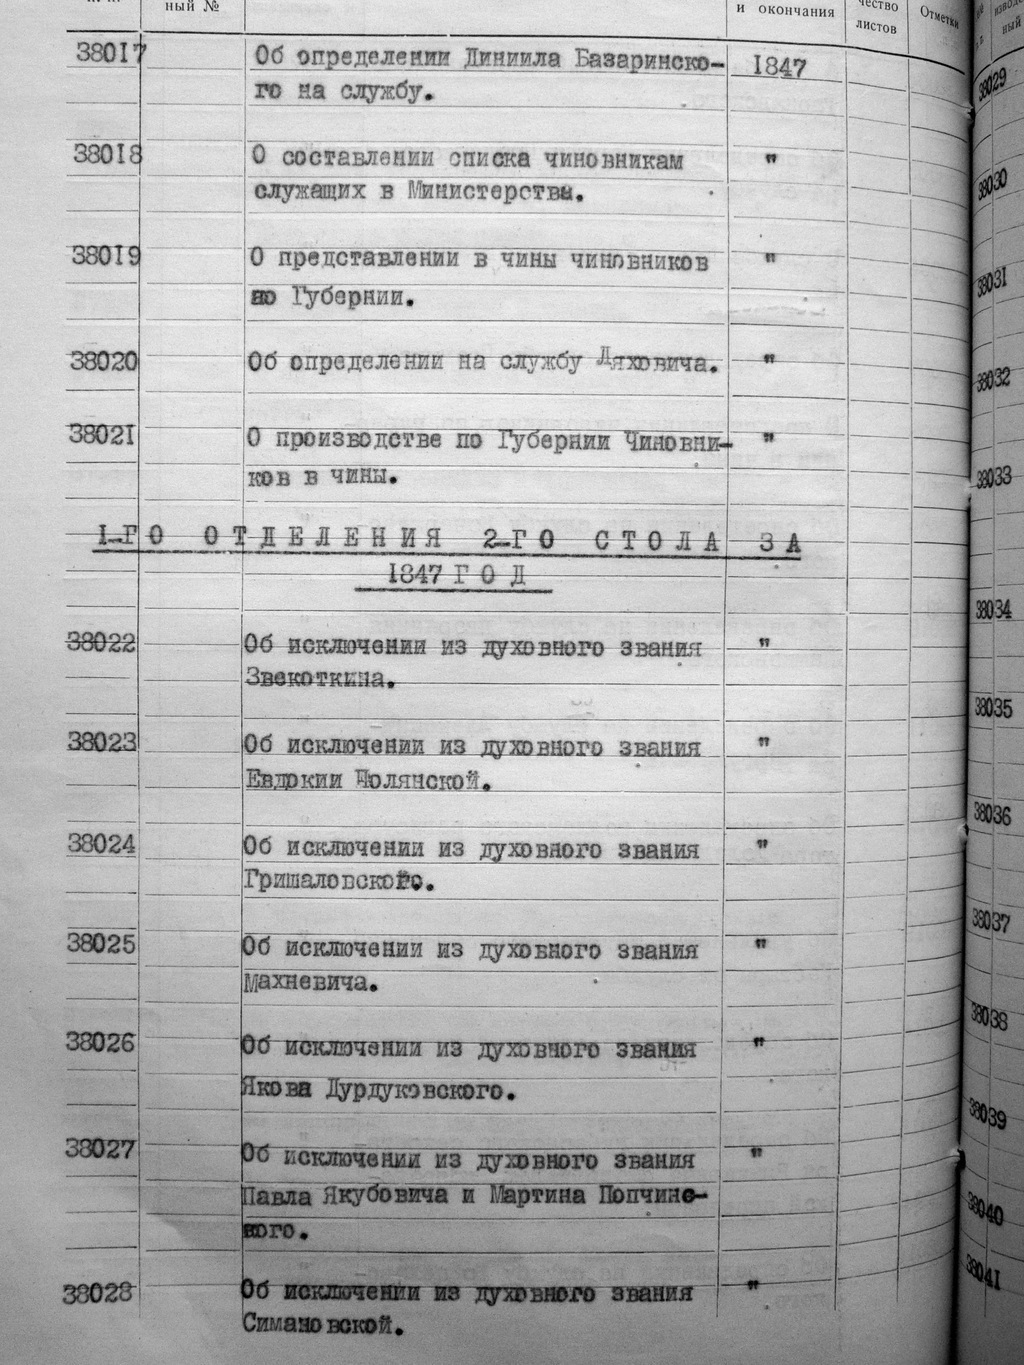 ный №
и окончания
чество
листов
Отметки
38017 Об определении Диниила Базаринско- 1847
го на службу.
38018 О составлении списка чиновникам "
служащих в Министерства.
38019 О представлении в чины чиновников "
по Губернии.
38020 Об определении на службу Ляховича. "
38021 О производстве по Губернии Чиновни- "
ков в чины.
1-ГО ОТДЕЛЕНИЯ 2-ГО СТОЛА ЗА
1847 ГОД
38022 Об исключении из духовного звания "
Звекоткина.
38023 Об исключении из духовного звания "
Евдокии Полянской.
38024 Об исключении из духовного звания "
Гришаловского.
38025 Об исключении из духовного звания "
Махневича.
38026 Об исключении из духовного звания "
Якова Дурдуковского.
38027 Об исключении из духовного звания "
Павла Якубовича и Мартина Попчинс-
кого.
38028 Об исключении из духовного звания "
Симановской.
38029
38030
38031
38032
38033
38034
38035
38036
38037
38038
38039
38040
38041